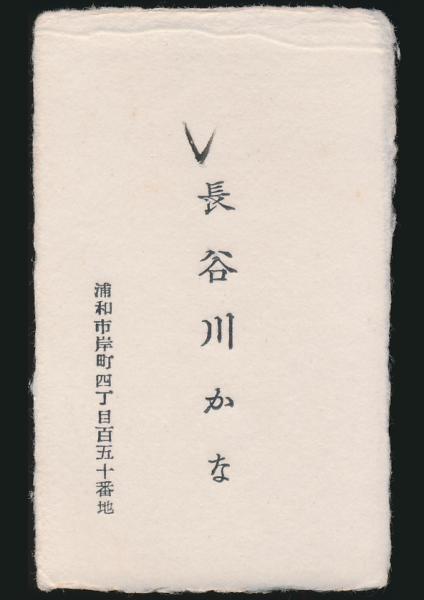 長谷川かな
浦和市岸町四丁目百五十番地